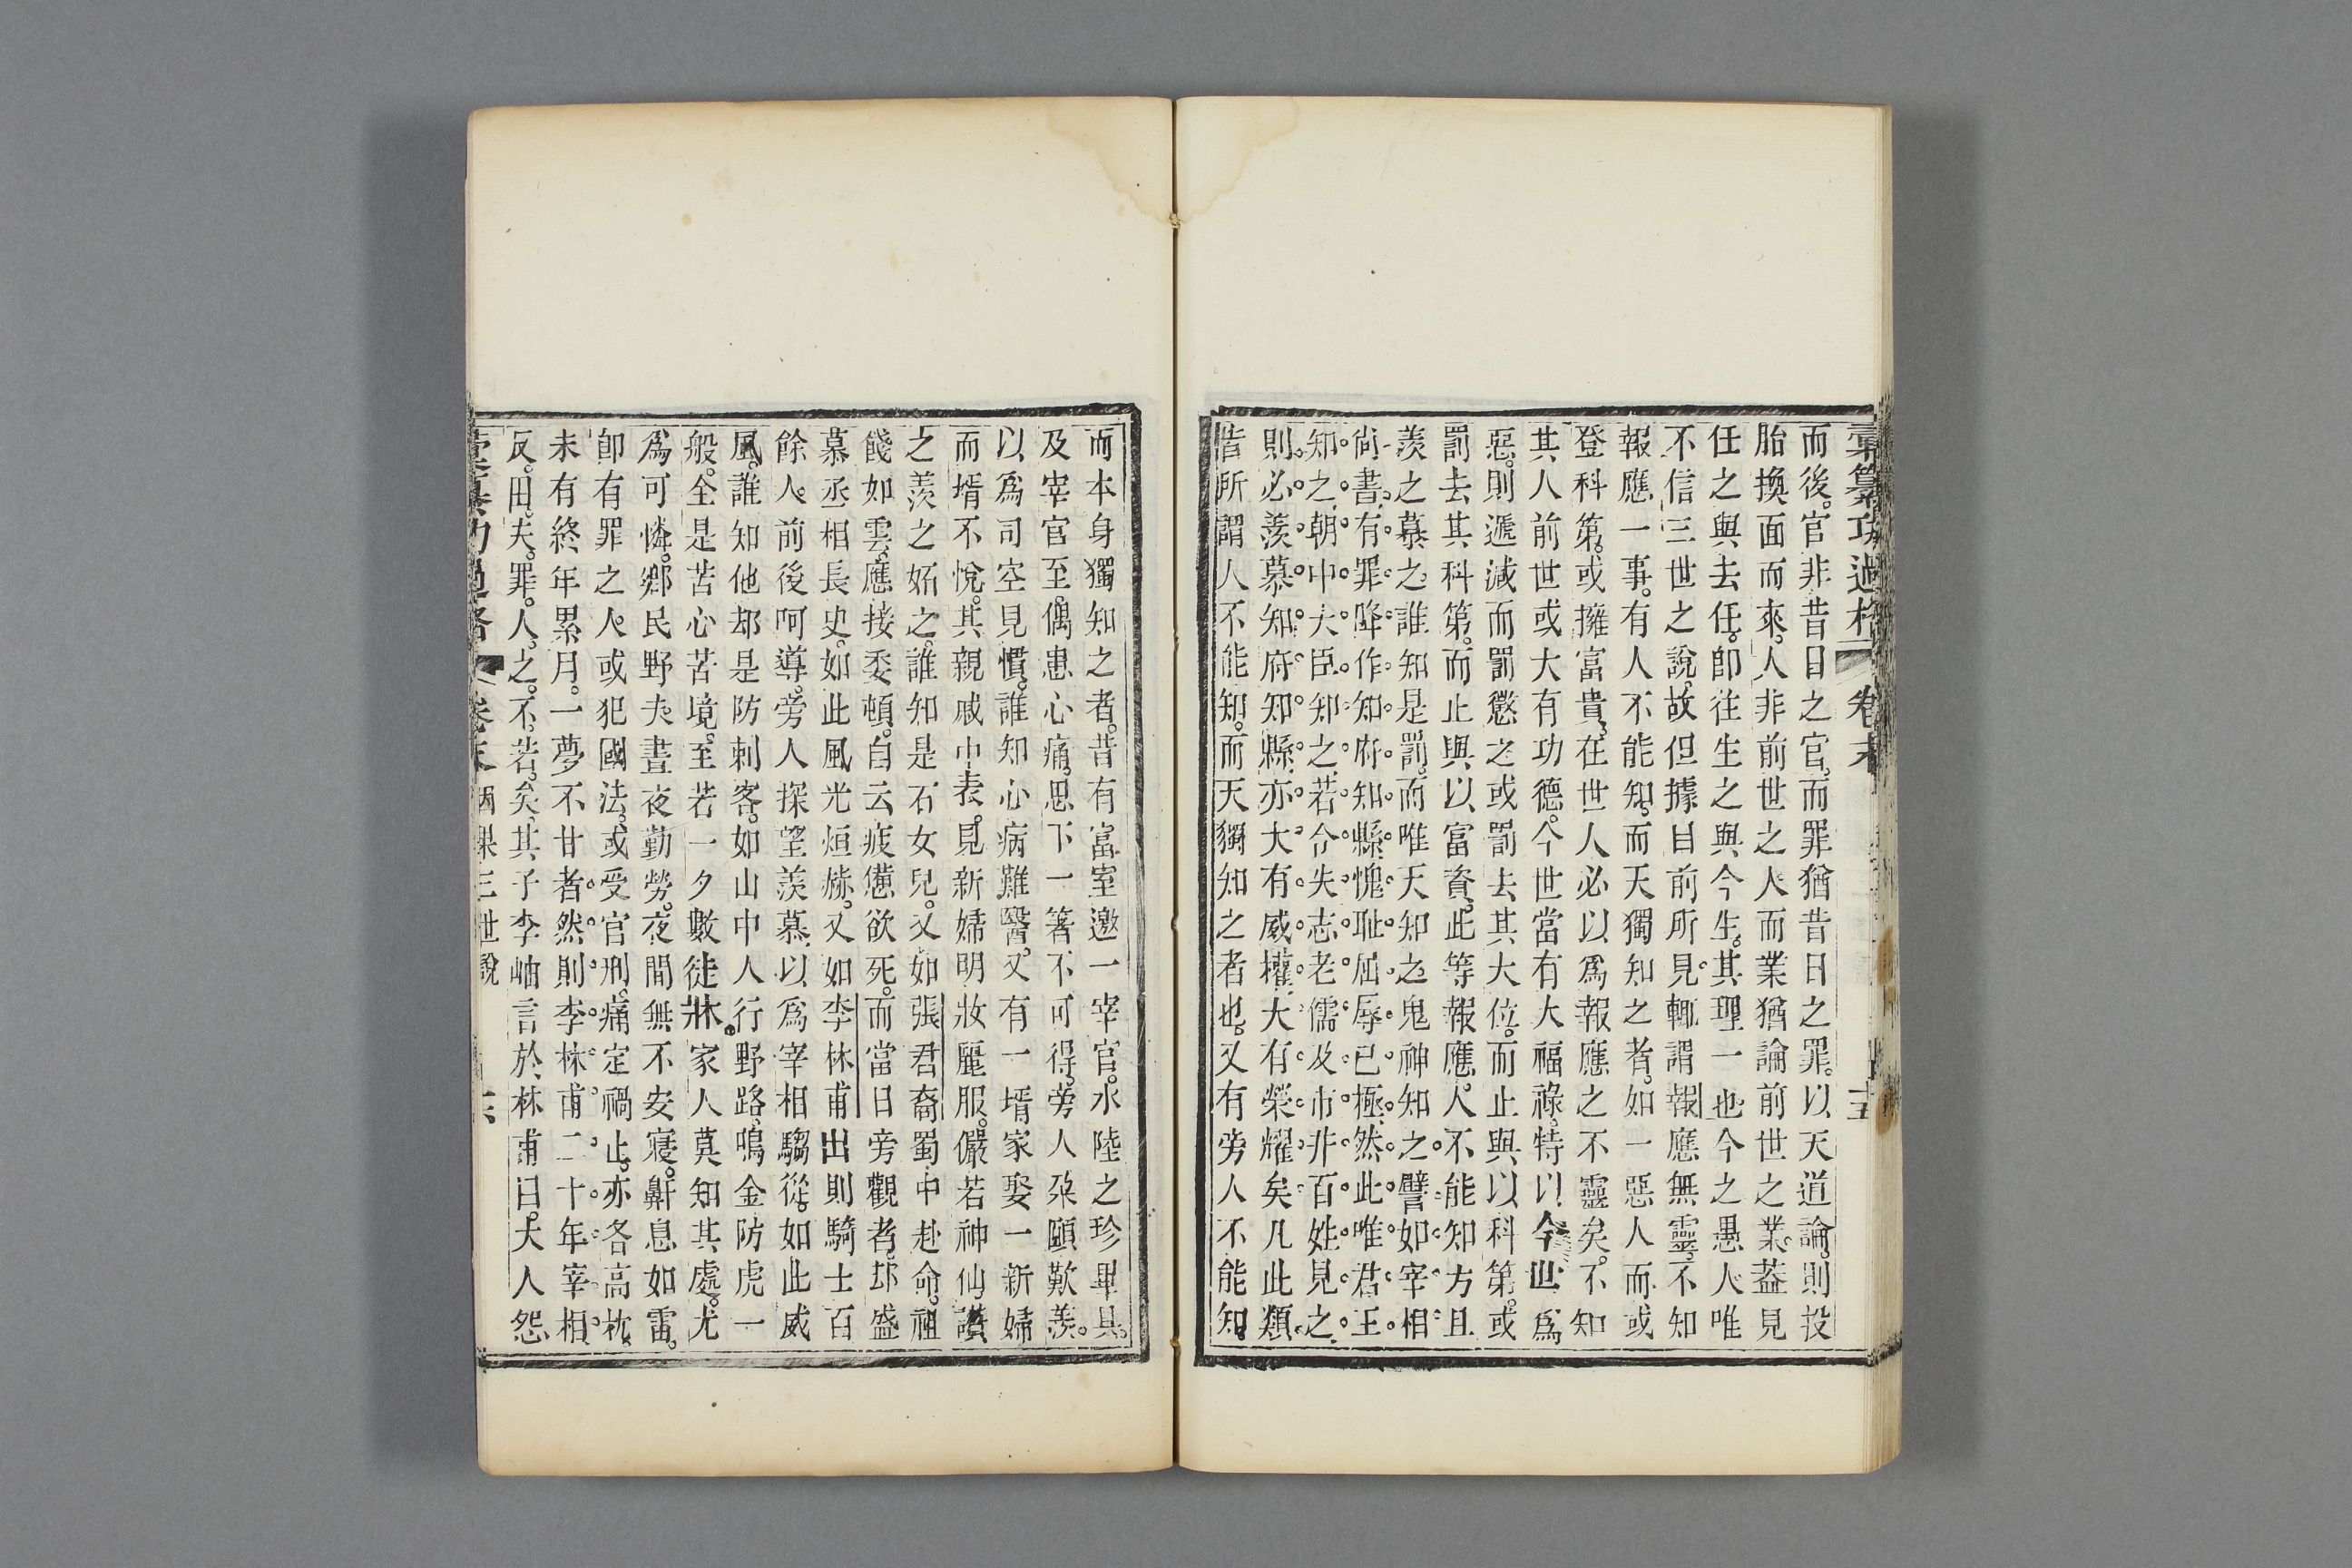 彙纂功過格 卷末 十五
而後。官非昔日之官。而罪猶昔日之罪。以天道論。則投
胎換面而來。人非前世之人而業猶論前世之業。葢見
任之與去任。卽往生之與今生。其理一也今之愚人唯
不信三世之說。故但據目前所見。輒謂報應無靈。不知
報應一事。有人不能知。而天獨知之者。如一惡人而或
登科第。或擁富貴。在世人必以爲報應之不靈矣。不知
其人前世或大有功德。今世當有大福祿。特以今世爲
惡。則遞減而罰懲之或罰去其大位。而止與以科第。或
罰去其科第。而止與以富資。此等報應。人不能知方且
羨之慕之誰知是罰。而唯天知之鬼神知之譬如宰相
尙書有罪降作知府知縣愧耻屈辱已極然此唯君王
知之朝中大臣知之若合失志老儒及市井百姓見之
則必羨慕知府知縣亦大有威權大有榮耀矣凡此類
皆所謂人不能知。而天獨知之者也。又有旁人不能知
而本身獨知之者。昔有富室邀一宰官。水陸之珍畢具。
及宰官至。偶患心痛。思下一箸不可得。旁人朶頤歎羨。
以爲司空見慣。誰知心病難醫。又有一壻家娶一新婦
而壻不悅。其親戚中表。見新婦明妝麗服。儼若神仙讚
之羨之妬之。誰知是石女兒。又如張君裔蜀中赴命。祖
餞如雲。應接委頓。自云疲憊欲死。而當日旁觀者。却盛
慕丞相長史。如此風光烜赫。又如李林甫出則騎士百
餘人。前後呵導。旁人探望羨慕以爲宰相騶從。如此威
風。誰知他却是防刺客。如山中人行野路。鳴金防虎一
般。全是苦心苦境。至若一夕數徙牀。家人莫知其處。尤
爲可憐。鄉民野夫晝夜勤勞。夜間無不安寢。鼾息如雷。
卽有罪之人。或犯國法。或受官刑。痛定禍止。亦各高枕
未有終年累月。一夢不甘者。然則李林甫二十年宰相
反。田。夫。罪。人。之。不。若。矣。其子李岫言於林甫曰。大人怨
彙纂功過格 卷末 因果三世說 十六